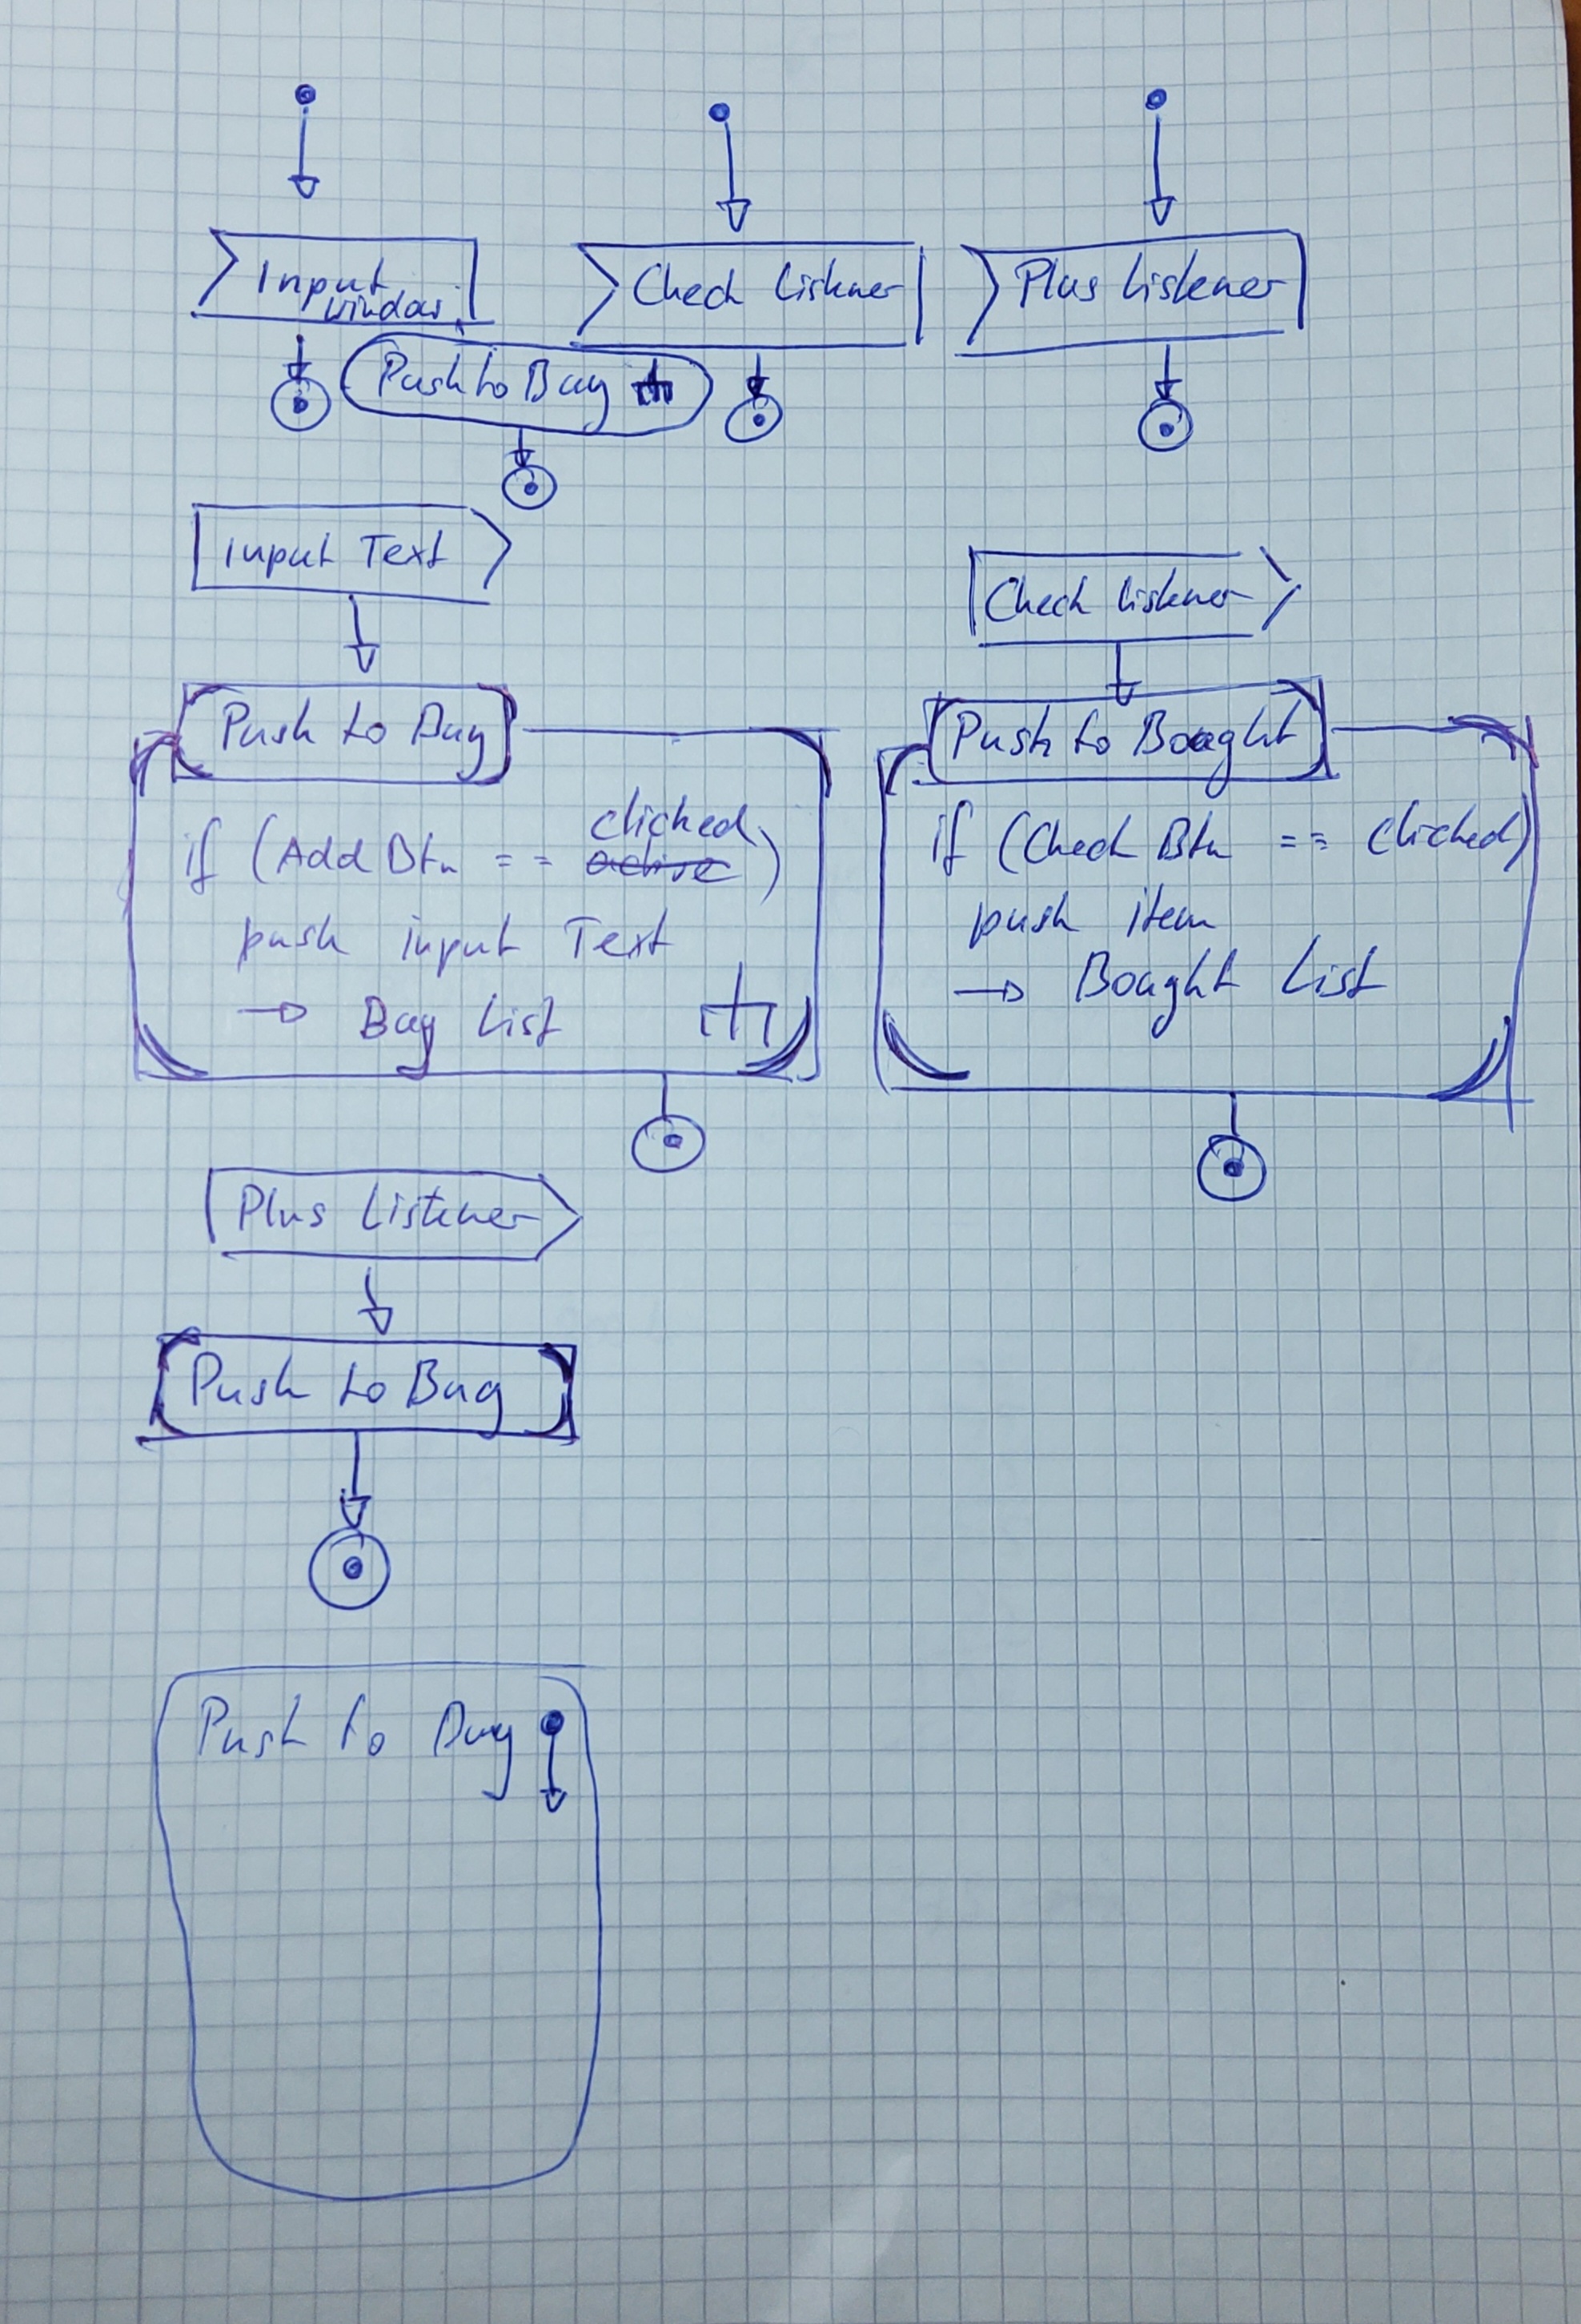 Input
window
Check Listener
Plus Listener
Push to Buy
Input Text
Check Listener
Push to Buy
Push to Bought
if (Add Btn == active clicked)
push input Text
→ Buy List
if (Check Btn == clicked)
push item
→ Bought List
Plus Listener
Push to Buy
Push to Buy